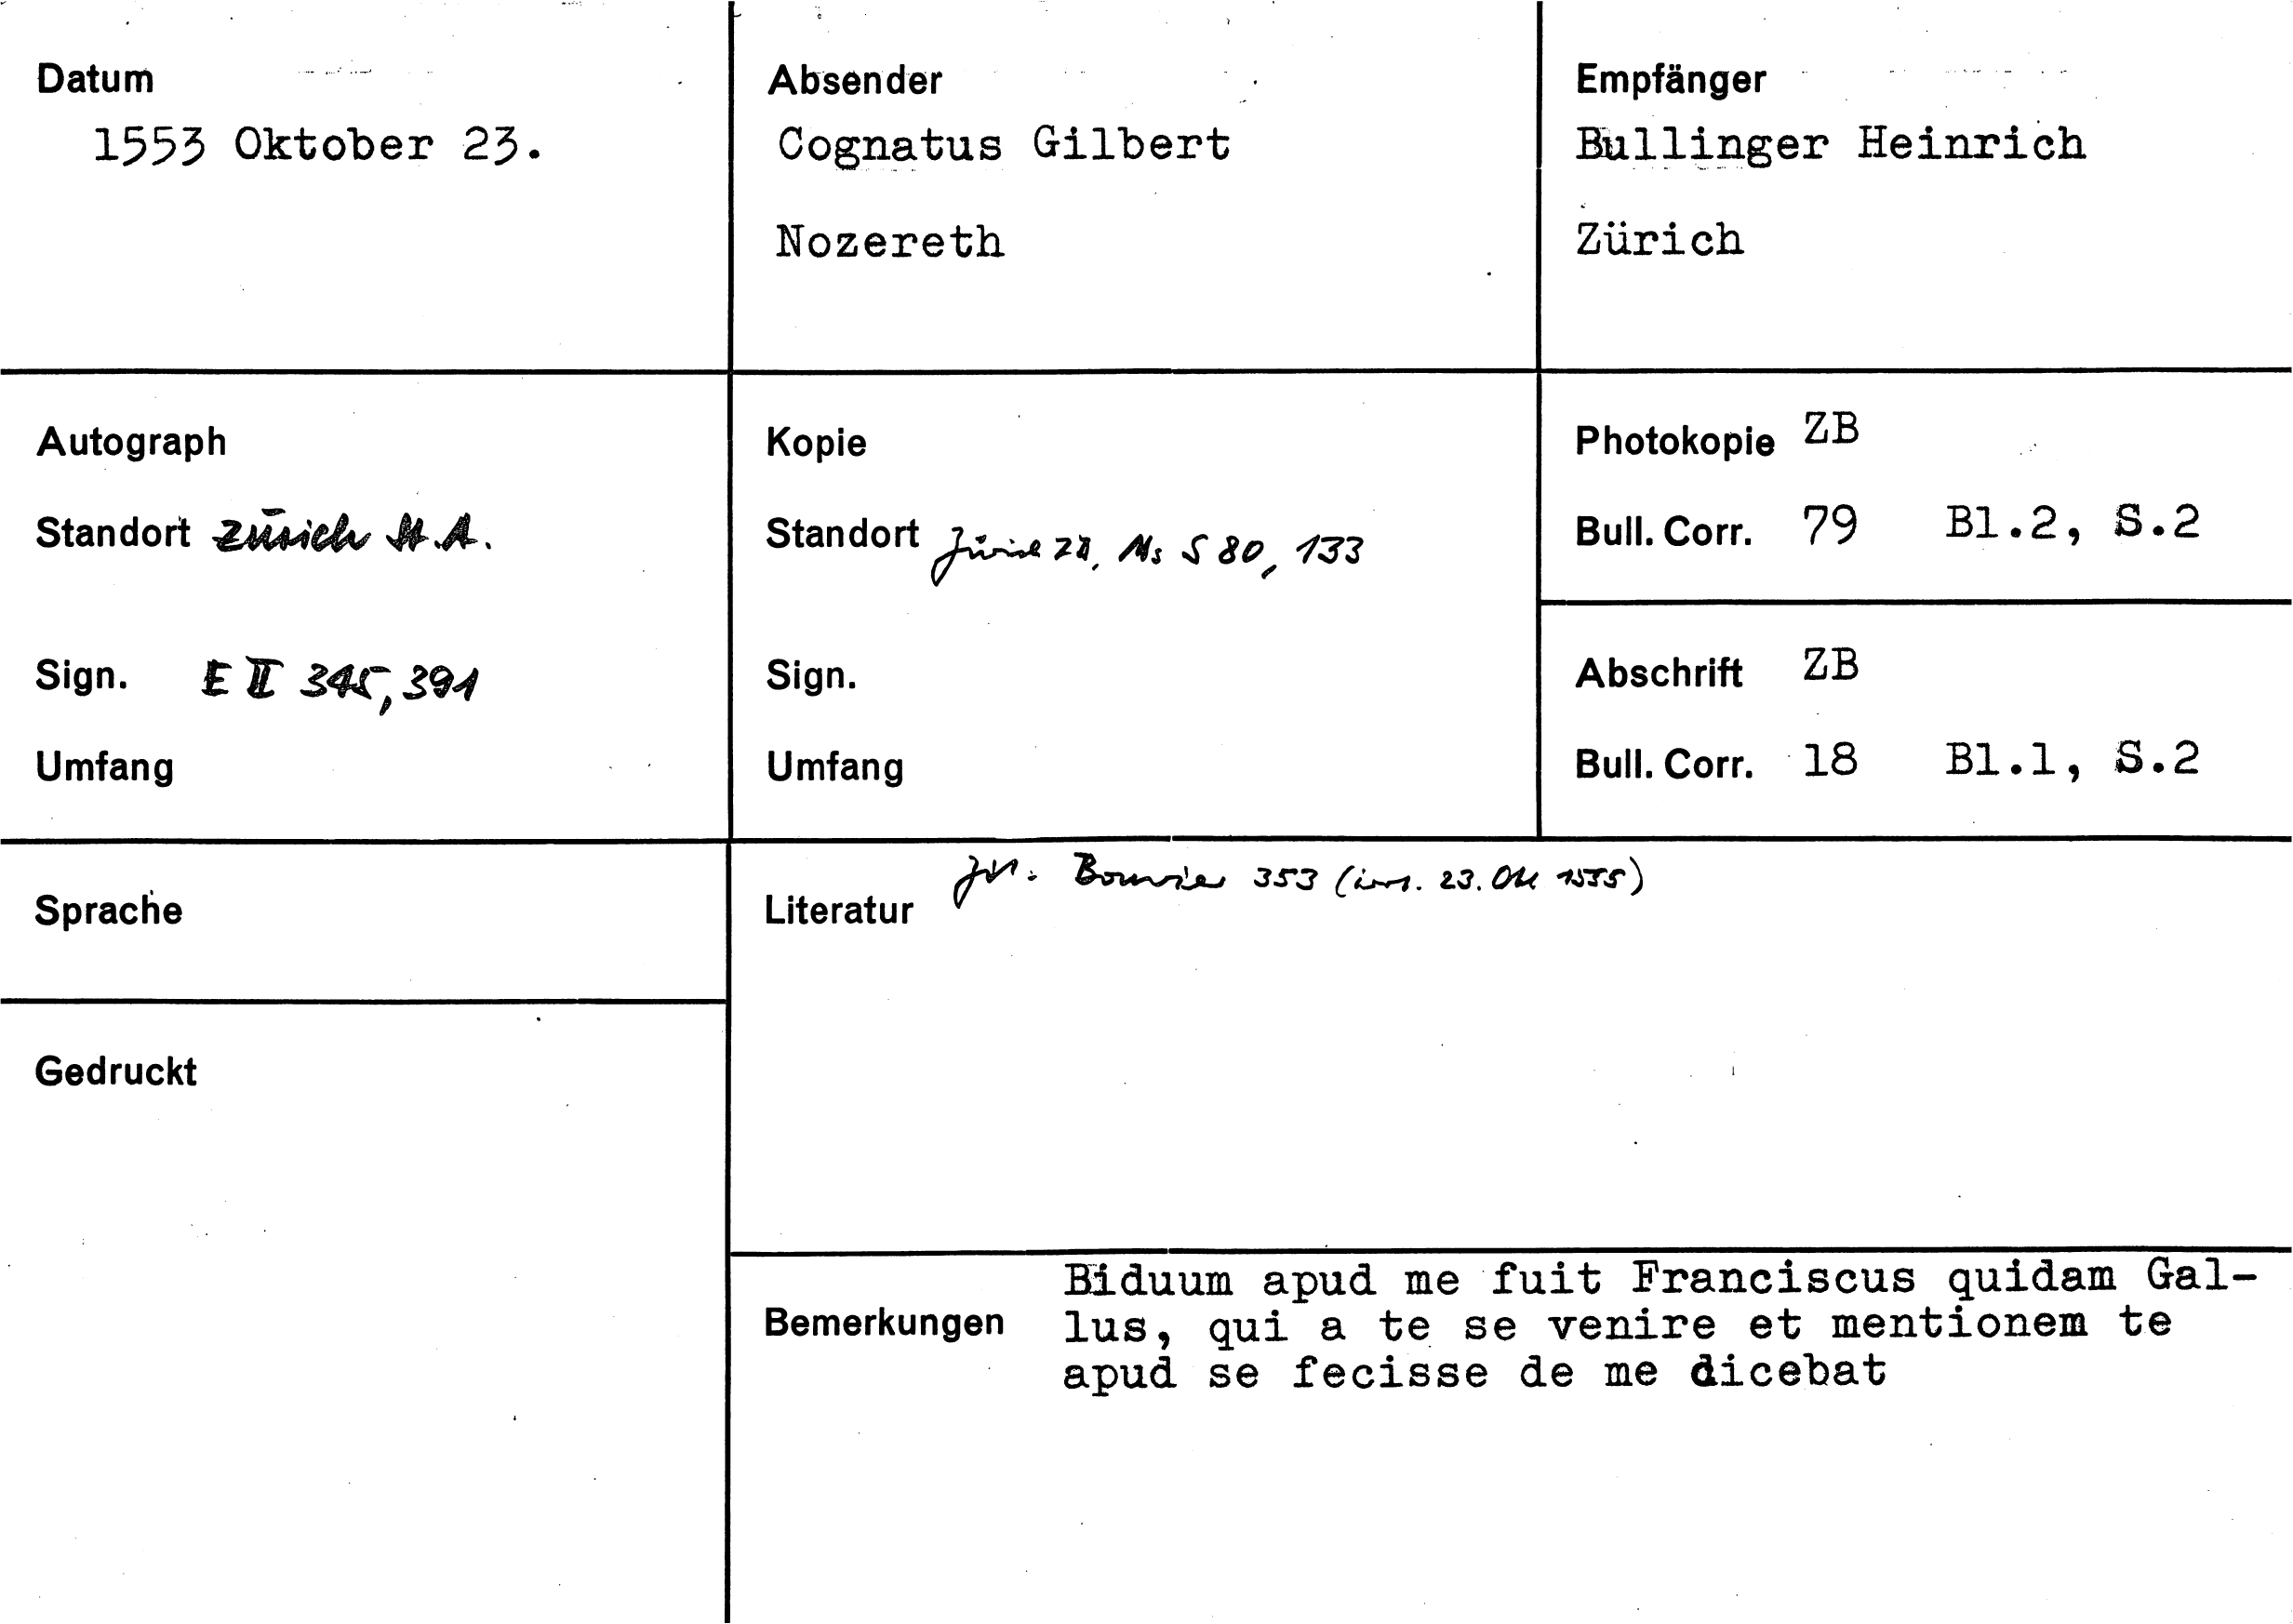 Datum
1553 Oktober 23.
Absender
Cognatus Gilbert
Nozereth
Empfänger
Bullinger Heinrich
Zürich
Autograph
Standort Zürich St.A.
Sign. E II 345, 391
Umfang
Kopie
Standort Zürich ZB, Ms S 80, 133
Sign.
Umfang
Photokopie ZB
Bull. Corr. 79 Bl.2, S.2
Abschrift ZB
Bull. Corr. 18 Bl.1, S.2
Sprache
Gedruckt
Literatur
Bouvier 353 (irrt. 23. Okt 1555)
Bemerkungen
Biduum apud me fuit Franciscus quidam Gal-
lus, qui a te se venire et mentionem te
apud se fecisse de me dicebat